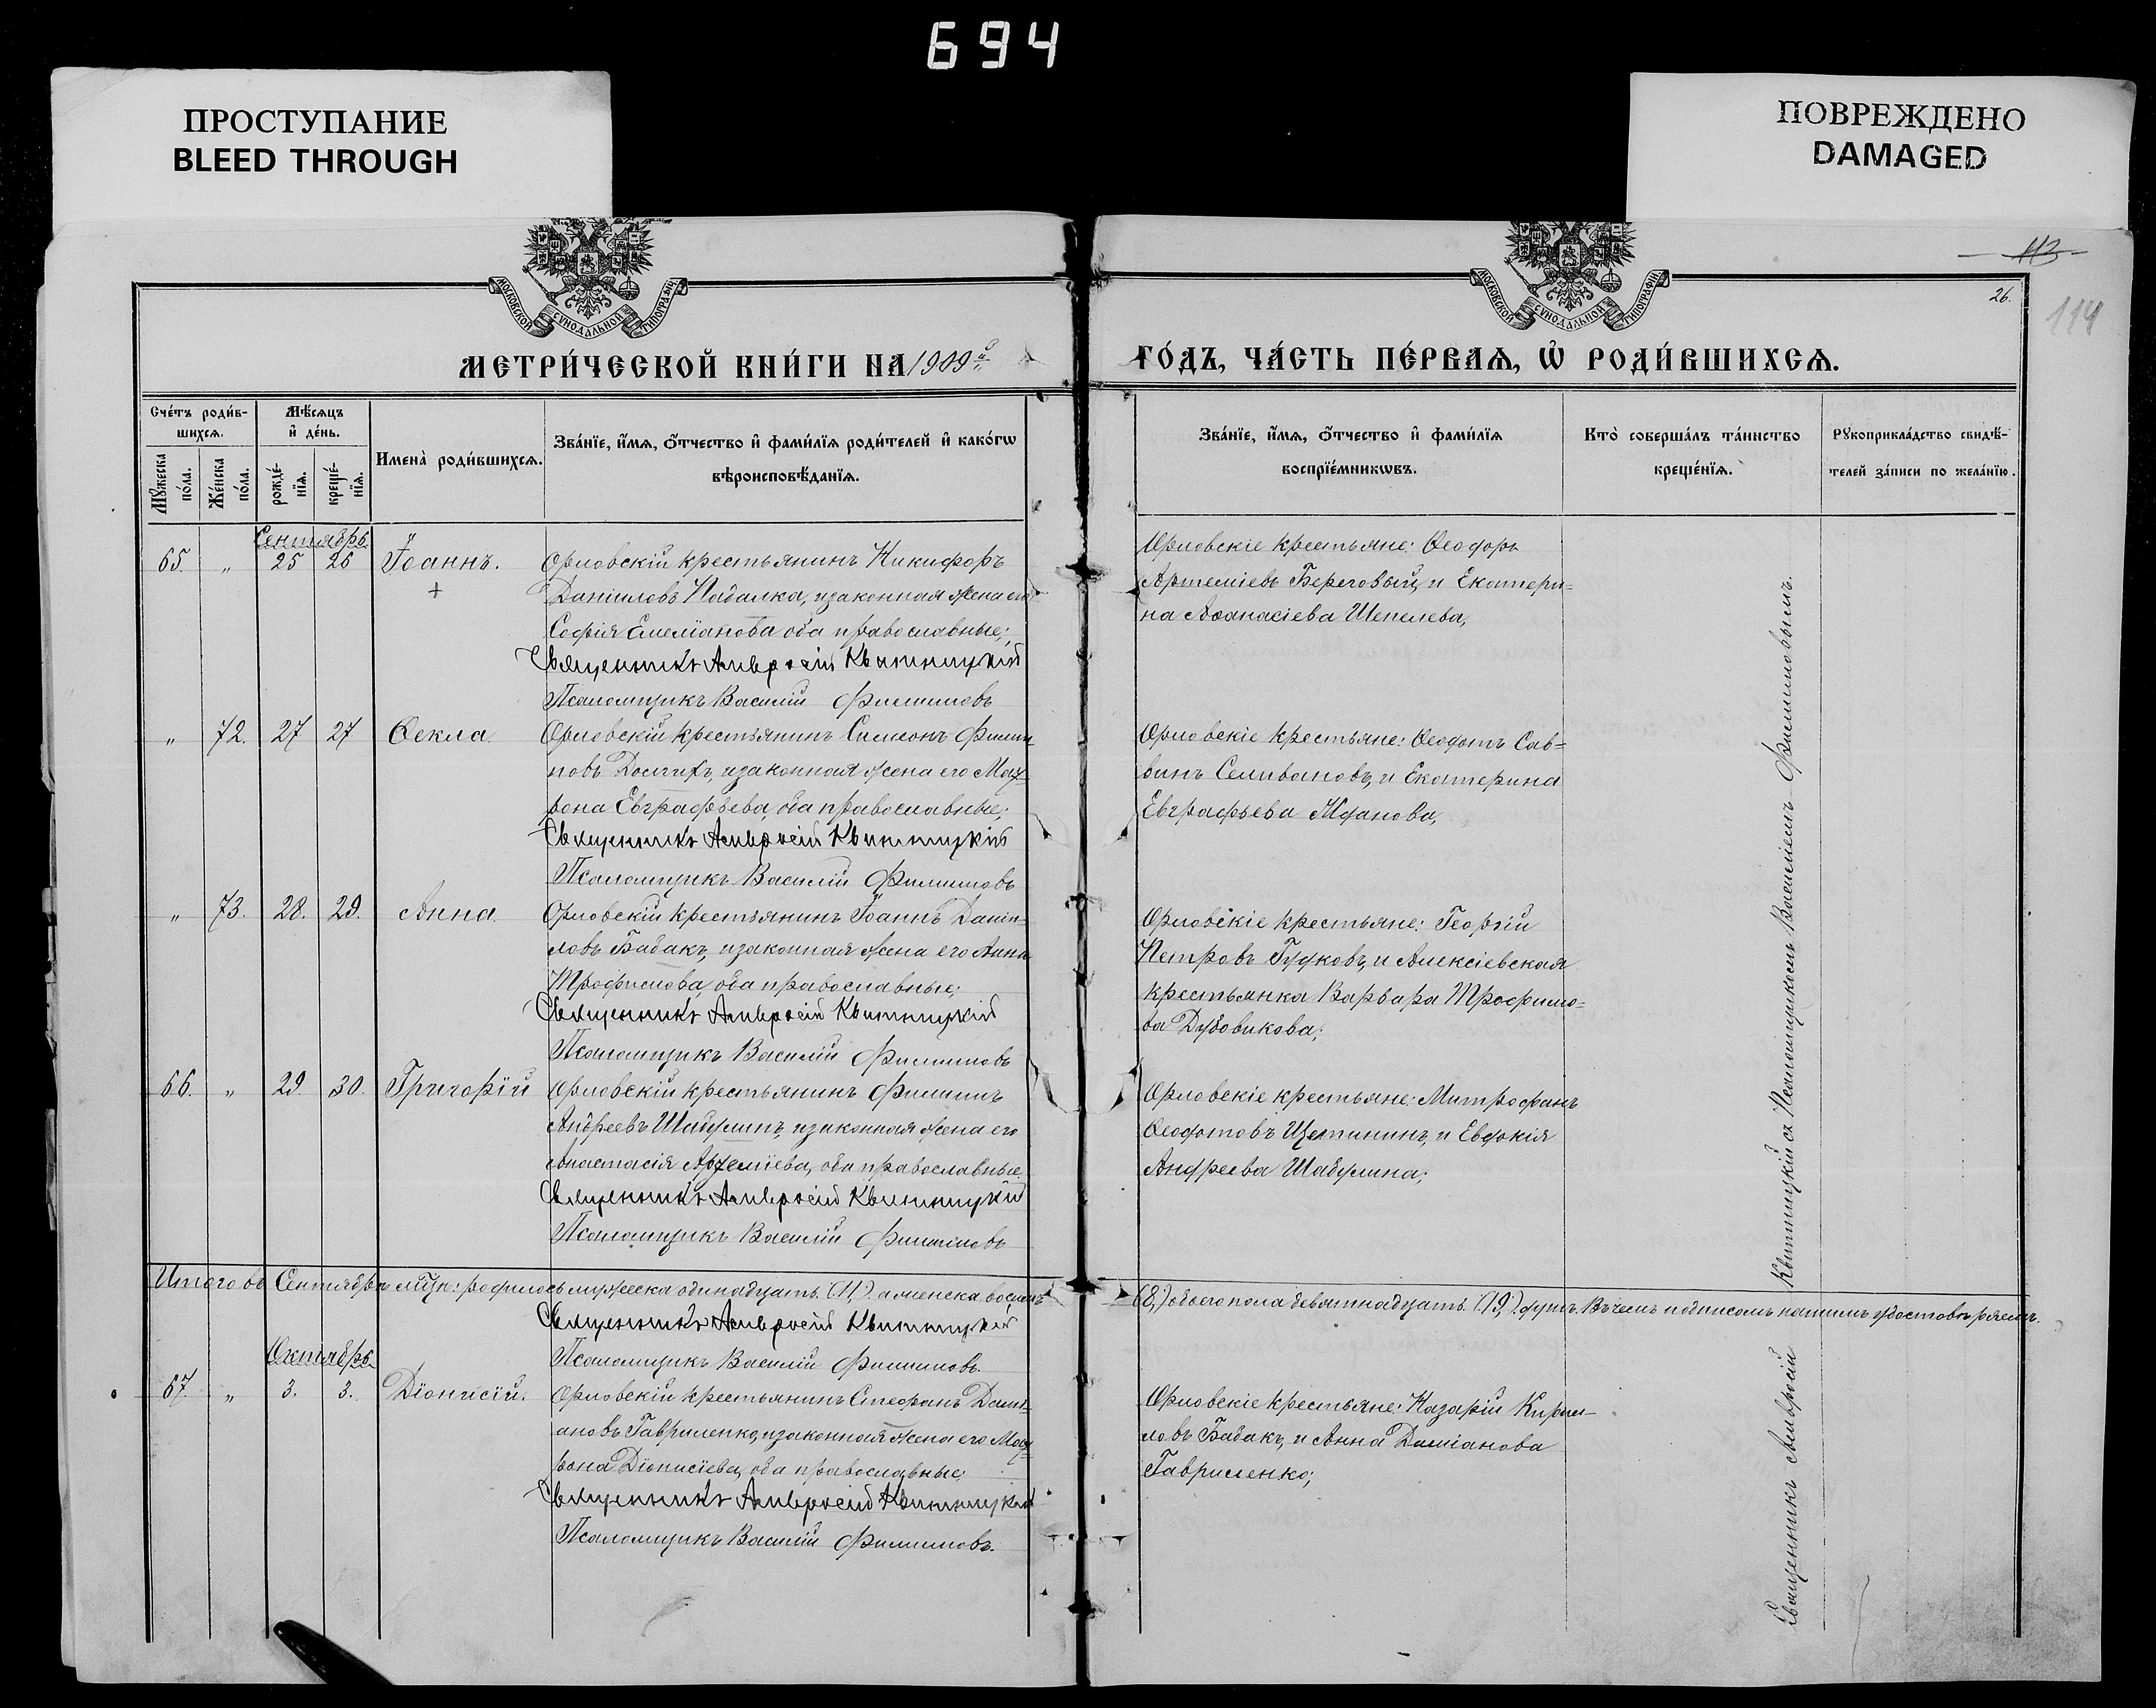 694
ПРОСТУПАНИЕ
BLEED THROUGH
ПОВРЕЖДЕНО
DAMAGED
113
26.
114
МОСКОВСКОЙ СѴНОДАЛЬНОЙ ТИПОГРАФІИ
МОСКОВСКОЙ СѴНОДАЛЬНОЙ ТИПОГРАФІИ
МЕТРИ́ЧЕСКОЙ КНИ́ГИ НА 1909й
ГО́ДЪ, ЧА́СТЬ ПЕ́РВАѦ, Ѡ҆ РОДИ́ВШИХСѦ.
Сче́тъ роди́в-
шихсѧ.
Мꙋ́жеска по́ла.
Же́нска по́ла.
Мѣ́сѧцъ
и҆ де́нь.
рожде́-
нїѧ.
креще́-
нїѧ.
Имена̀ роди́вшихсѧ.
Зва́нїе, и҆́мѧ, ѻ҆́тчество и҆ фами́лїѧ роди́телей и҆ како́гѡ
вѣроисповѣ́данїѧ.
Зва́нїе, и҆́мѧ, ѻ҆́тчество и҆ фами́лїѧ
воспрїе́мникѡвъ.
Кто̀ соверша́лъ та́инство
креще́нїѧ.
Рꙋкоприкла́дство свидѣ́-
телей за́писи по жела́нїю.
Сентябрь.
65. " 25 26 Іоаннъ.
+
Орловскій крестьянинъ Никифоръ
Даніиловъ Падалка, и законная жена его
Софія Емеліанова оба православные;
Священникъ Амвросій Квитницкій
Псаломщикъ Василій Филипповъ
Орловскіе крестьяне: Ѳеодоръ
Артеміевъ Береговый, и Екатери-
на Аѳанасіева Шепелева,
" 72. 27 27 Ѳекла.
Орловскій крестьянинъ Симеонъ Филип-
повъ Долгихъ, и законная жена его Мав-
рона Евграфьева, оба православные;
Священникъ Амвросій Квитницкій
Псаломщикъ Василій Филипповъ
Орловскіе крестьяне: Ѳеодотъ Сав-
винъ Селивановъ, и Екатерина
Евграфьева Жданова,
" 73. 28. 29. Анна.
Орловскій крестьянинъ Іоаннъ Даніи-
ловъ Бабакъ, и законная жена его Анна
Трофимова, оба православные;
Священникъ Амвросій Квитницкій
Псаломщикъ Василій Филипповъ
Орловскіе крестьяне: Георгій
Петровъ Гудковъ, и Алексіевская
крестьянка Варвара Трофимо-
ва Дубовикова;
66. " 29. 30. Григорій
Орловскій крестьянинъ Филиппъ
Андреевъ Шабулинъ, и законная жена его
Анастасія Артеміева, оба православные.
Священникъ Амвросій Квитницкій
Псаломщикъ Василій Филипповъ
Орловскіе крестьяне: Митрофанъ
Ѳеодотовъ Щетининъ, и Евдокія
Андреева Шабулина;
Итого въ Сентябрѣ мцѣ: родилось мужеска одинадцать (11,) а женска восемь
(8,) обоего пола девятнадцать (19,) душъ. Въ чемъ подписомъ нашимъ удостовѣряемъ.
Священникъ Амвросій Квитницкій
Псаломщикъ Василій Филипповъ.
Октябрь.
67. " 3. 3. Діонисій.
Орловскій крестьянинъ Стефанъ Дамі-
ановъ Гавриленко, и законная жена его Мав-
рона Діонисіева, оба православные;
Священникъ Амвросій Квитницкій
Псаломщикъ Василій Филипповъ.
Орловскіе крестьяне: Назарій Кирил-
ловъ Бабакъ, и Анна Даміанова
Гавриленко;
Священникъ Амвросій Квитницкій съ Псаломщикомъ Василіемъ Филипповымъ.